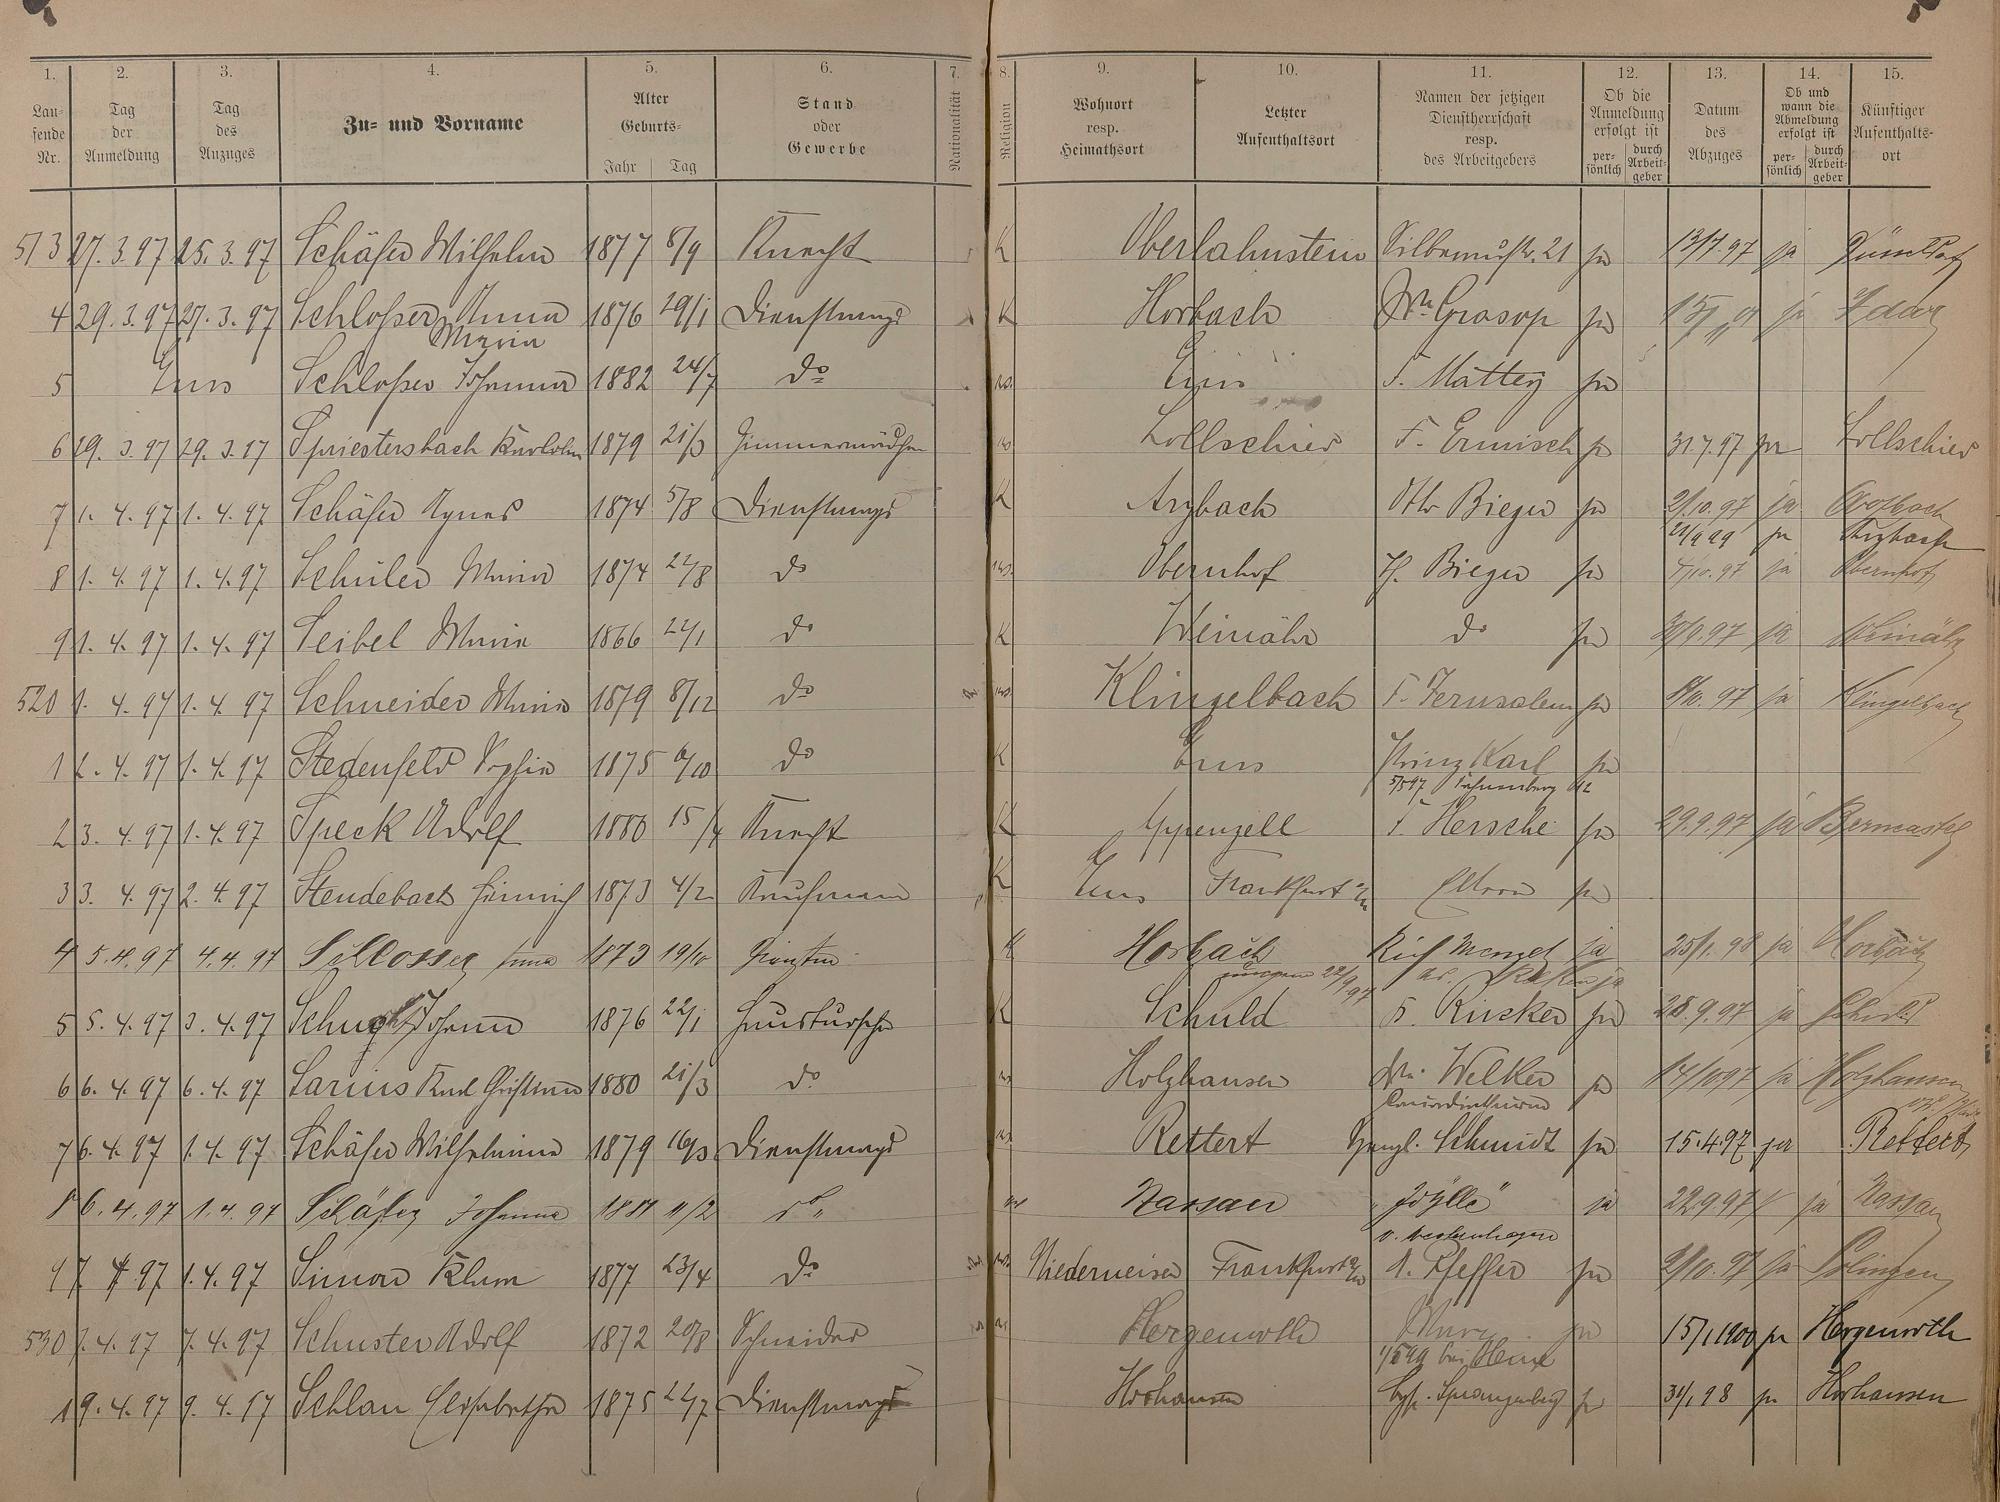 1. 2. 3. 4. 5. 6. 7. 8. 9. 10. 11. 12. 13. 14. 15.
Laufende Nr. Tag der Anmeldung Tag des Anzuges Zu- und Vorname Alter Geburts- Jahr Tag Stand oder Gewerbe Nationalität Religion Wohnort resp. Heimathsort Letzter Aufenthaltsort Namen der jetzigen Dienstherrschaft resp. des Arbeitgebers Ob die Anmeldung erfolgt ist persönlich durch Arbeitgeber Datum des Abzuges Ob und wann die Abmeldung erfolgt ist persönlich durch Arbeitgeber Künftiger Aufenthaltsort
513 27.3.97 25.3.97 Schäfer Wilhelm 1877 8/9 Knecht K Oberlahnstein 21 ja 13/7.97 ja Düsseldorf
4 29.3.97 27.3.97 Schloßer Anna 1876 29/1 Dienstmagd K Horbach ja ja
Maria
5 Ems Schloßer Johanna 1882 24/7 do Ems F. Mattey ja
6 29.3.97 29.3.97 Spriestersbach Karoline 1879 21/3 Zimmermädchen Lollschied F. Ermisch ja 31.7.97 ja Lollschied
7 1.4.97 1.4.97 Schäfer Agnes 1874 5/8 Dienstmagd K Arzbach Otto Bieger ja 2/10.97 ja Arzbach
ja Arzbach
8 1.4.97 1.4.97 Schuler Maria 1874 22/8 do Obernhof H. Bieger ja 4/10.97 ja Obernhof
9 1.4.97 1.4.97 Seibel Maria 1866 22/1 do K Weinähr do ja 30/9.97 ja Weinähr
520 1.4.97 1.4.97 Schneider Maria 1879 8/12 do Klingelbach F. Jerusalem ja 8/10.97 ja Klingelbach
1 2.4.97 1.4.97 Stedenfeld Sophie 1875 6/10 do K Ems Prinz Karl ja
2 3.4.97 1.4.97 Speck Adolf 1880 15/4 Knecht K Appenzell F. Hersche ja 29.9.97 ja Berncastel
3 3.4.97 2.4.97 Stendebach Heinrich 1873 4/2 Kaufmann K Ems Frankfurt a/M Eltern ja
4 5.4.97 4.4.97 Schlosser Anna 1873 19/10 K Horbach Menzel ja 25/1.98 ja Horbach
22/9 97 ja
5 5.4.97 3.4.97 Johann 1876 22/1 Hausbursche K Schuld F. Rücker ja 28.9.97 ja Schuld
6 6.4.97 6.4.97 Sarius Karl Christian 1880 21/3 do Holzhausen Welker ja 14/10 97 ja Holzhausen
7 6.4.97 1.4.97 Schäfer Wilhelmine 1879 16/3 Dienstmagd Rettert Schmidt ja 15.4.97 ja Rettert
8 6.4.97 1.4.97 Schäfer Johanna 1881 11/2 do Nassau "Idylle" ja 22.9.97 ja Nassau
9 7.4.97 1.4.97 Simon 1877 23/4 do Niederneisen Frankfurt a/M A. Pfeffer ja 2/10.97 ja Solingen
530 7.4.97 7.4.97 Schuster Adolf 1872 20/8 Schneider Hergenroth ja 15/1 1900 ja Hergenroth
1 9.4.97 9.4.97 Schlau Elisabethe 1875 22/7 Dienstmagd Horhausen Spangenberg ja 30/1 98 ja Horhausen